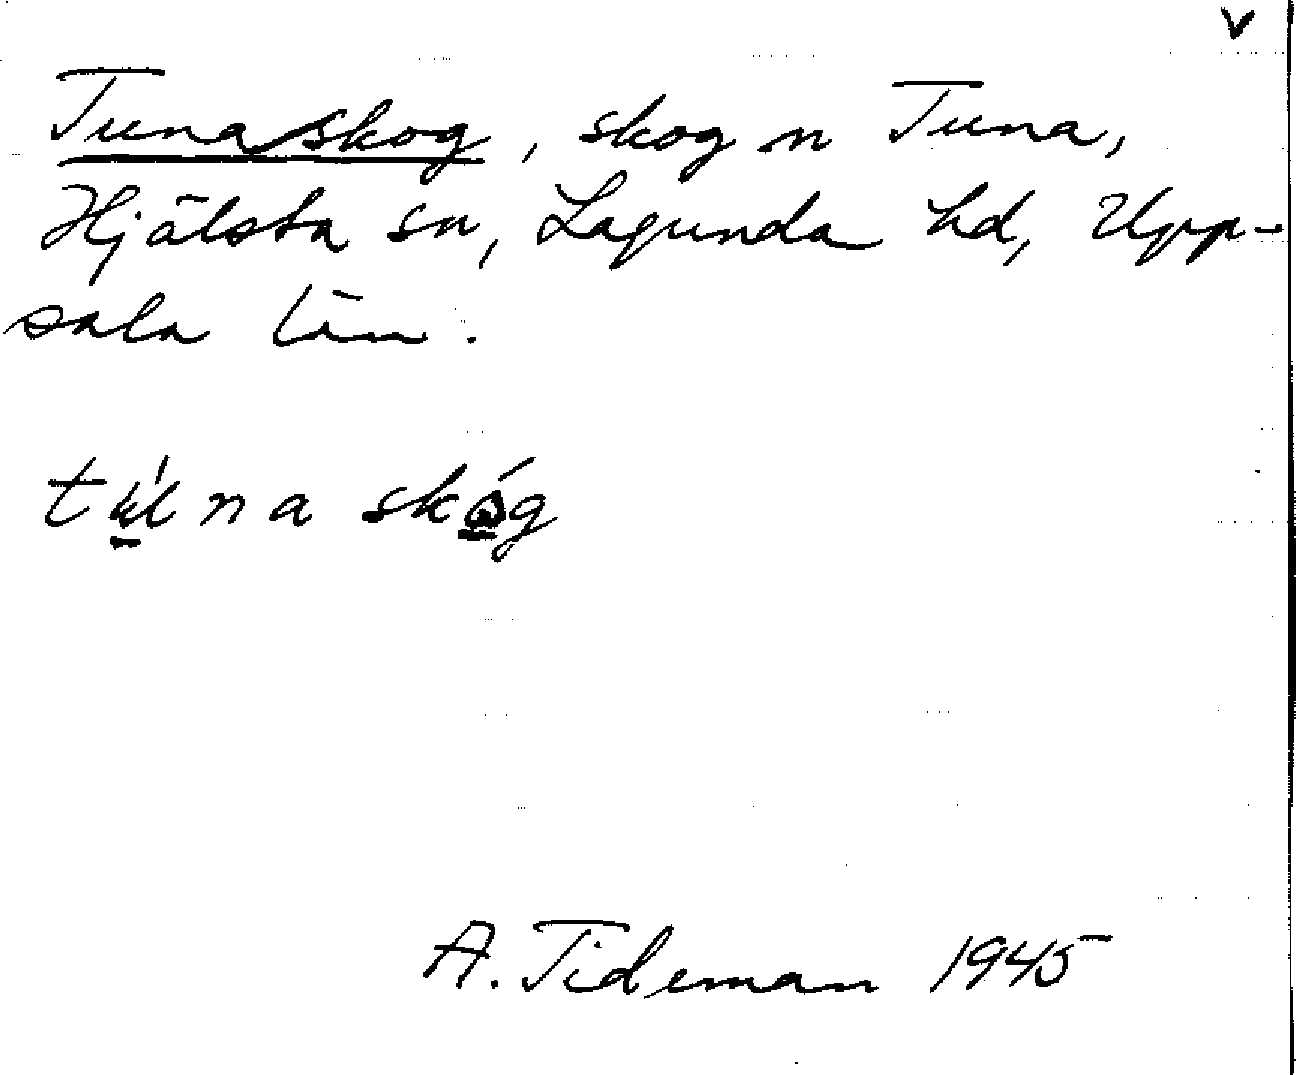 v
Tunaskog, skog n Tuna,
Hjälsta sn, Lagunda hd, Upp-
sala län.
tú̲na skó̲g
A. Tideman 1945